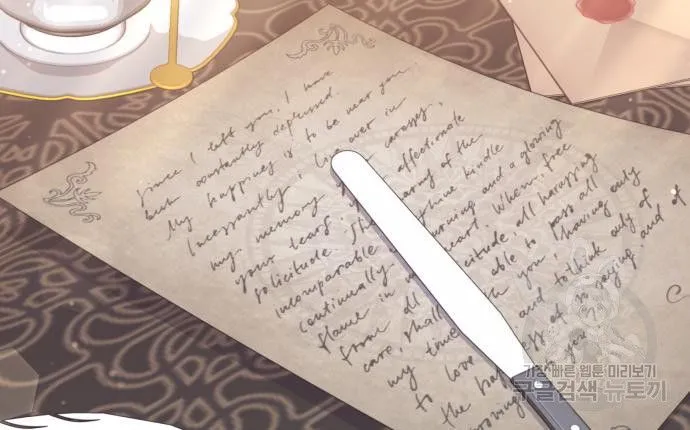 Since I left you, I have
but constantly depressed.
My happiness is to be near you.
Incessantly I live over in
my memory your caresses,
your tears, your affectionate
solicitude. The charms of the
incomparable Josephine kindle
continually a burning and a glowing
flame in my heart. When, free
from all solicitude, all harassing
care, shall I be able to pass all
my time with you, having only
to love you, and to think only of
the happiness of so saying, and of
proving it to you
가장 빠른 웹툰 미리보기
구글검색 뉴토끼